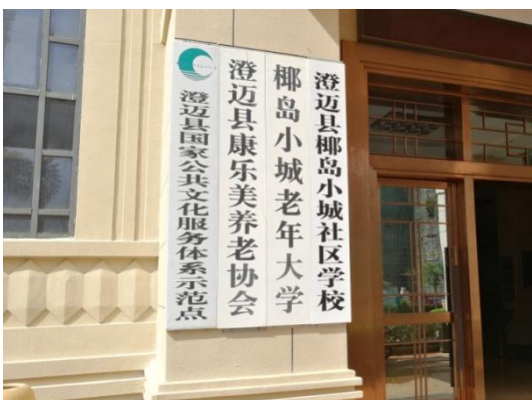 澄迈县国家公共文化服务体系示范点
澄迈县康乐美养老协会
椰岛小城老年大学
澄迈县椰岛小城社区学校